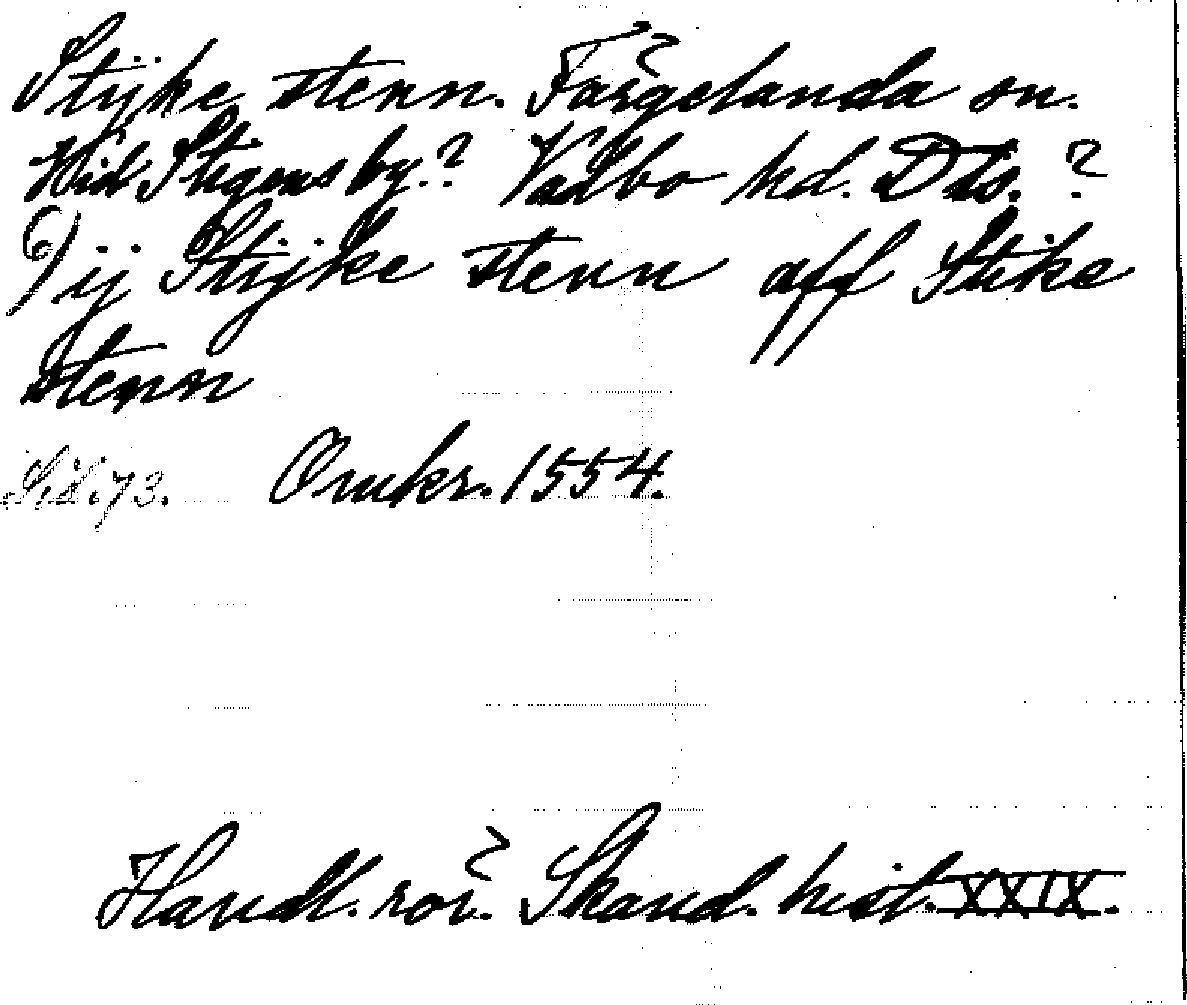 Stijke stenn. Färgelanda sn.
Vid Stigens by.? Valbo hd. Dls. ?
6) ij Stijke stenn aff Stike
stenn
Sid. 73. Omkr. 1554.
Handl. rör. Skand. hist. XXIX.